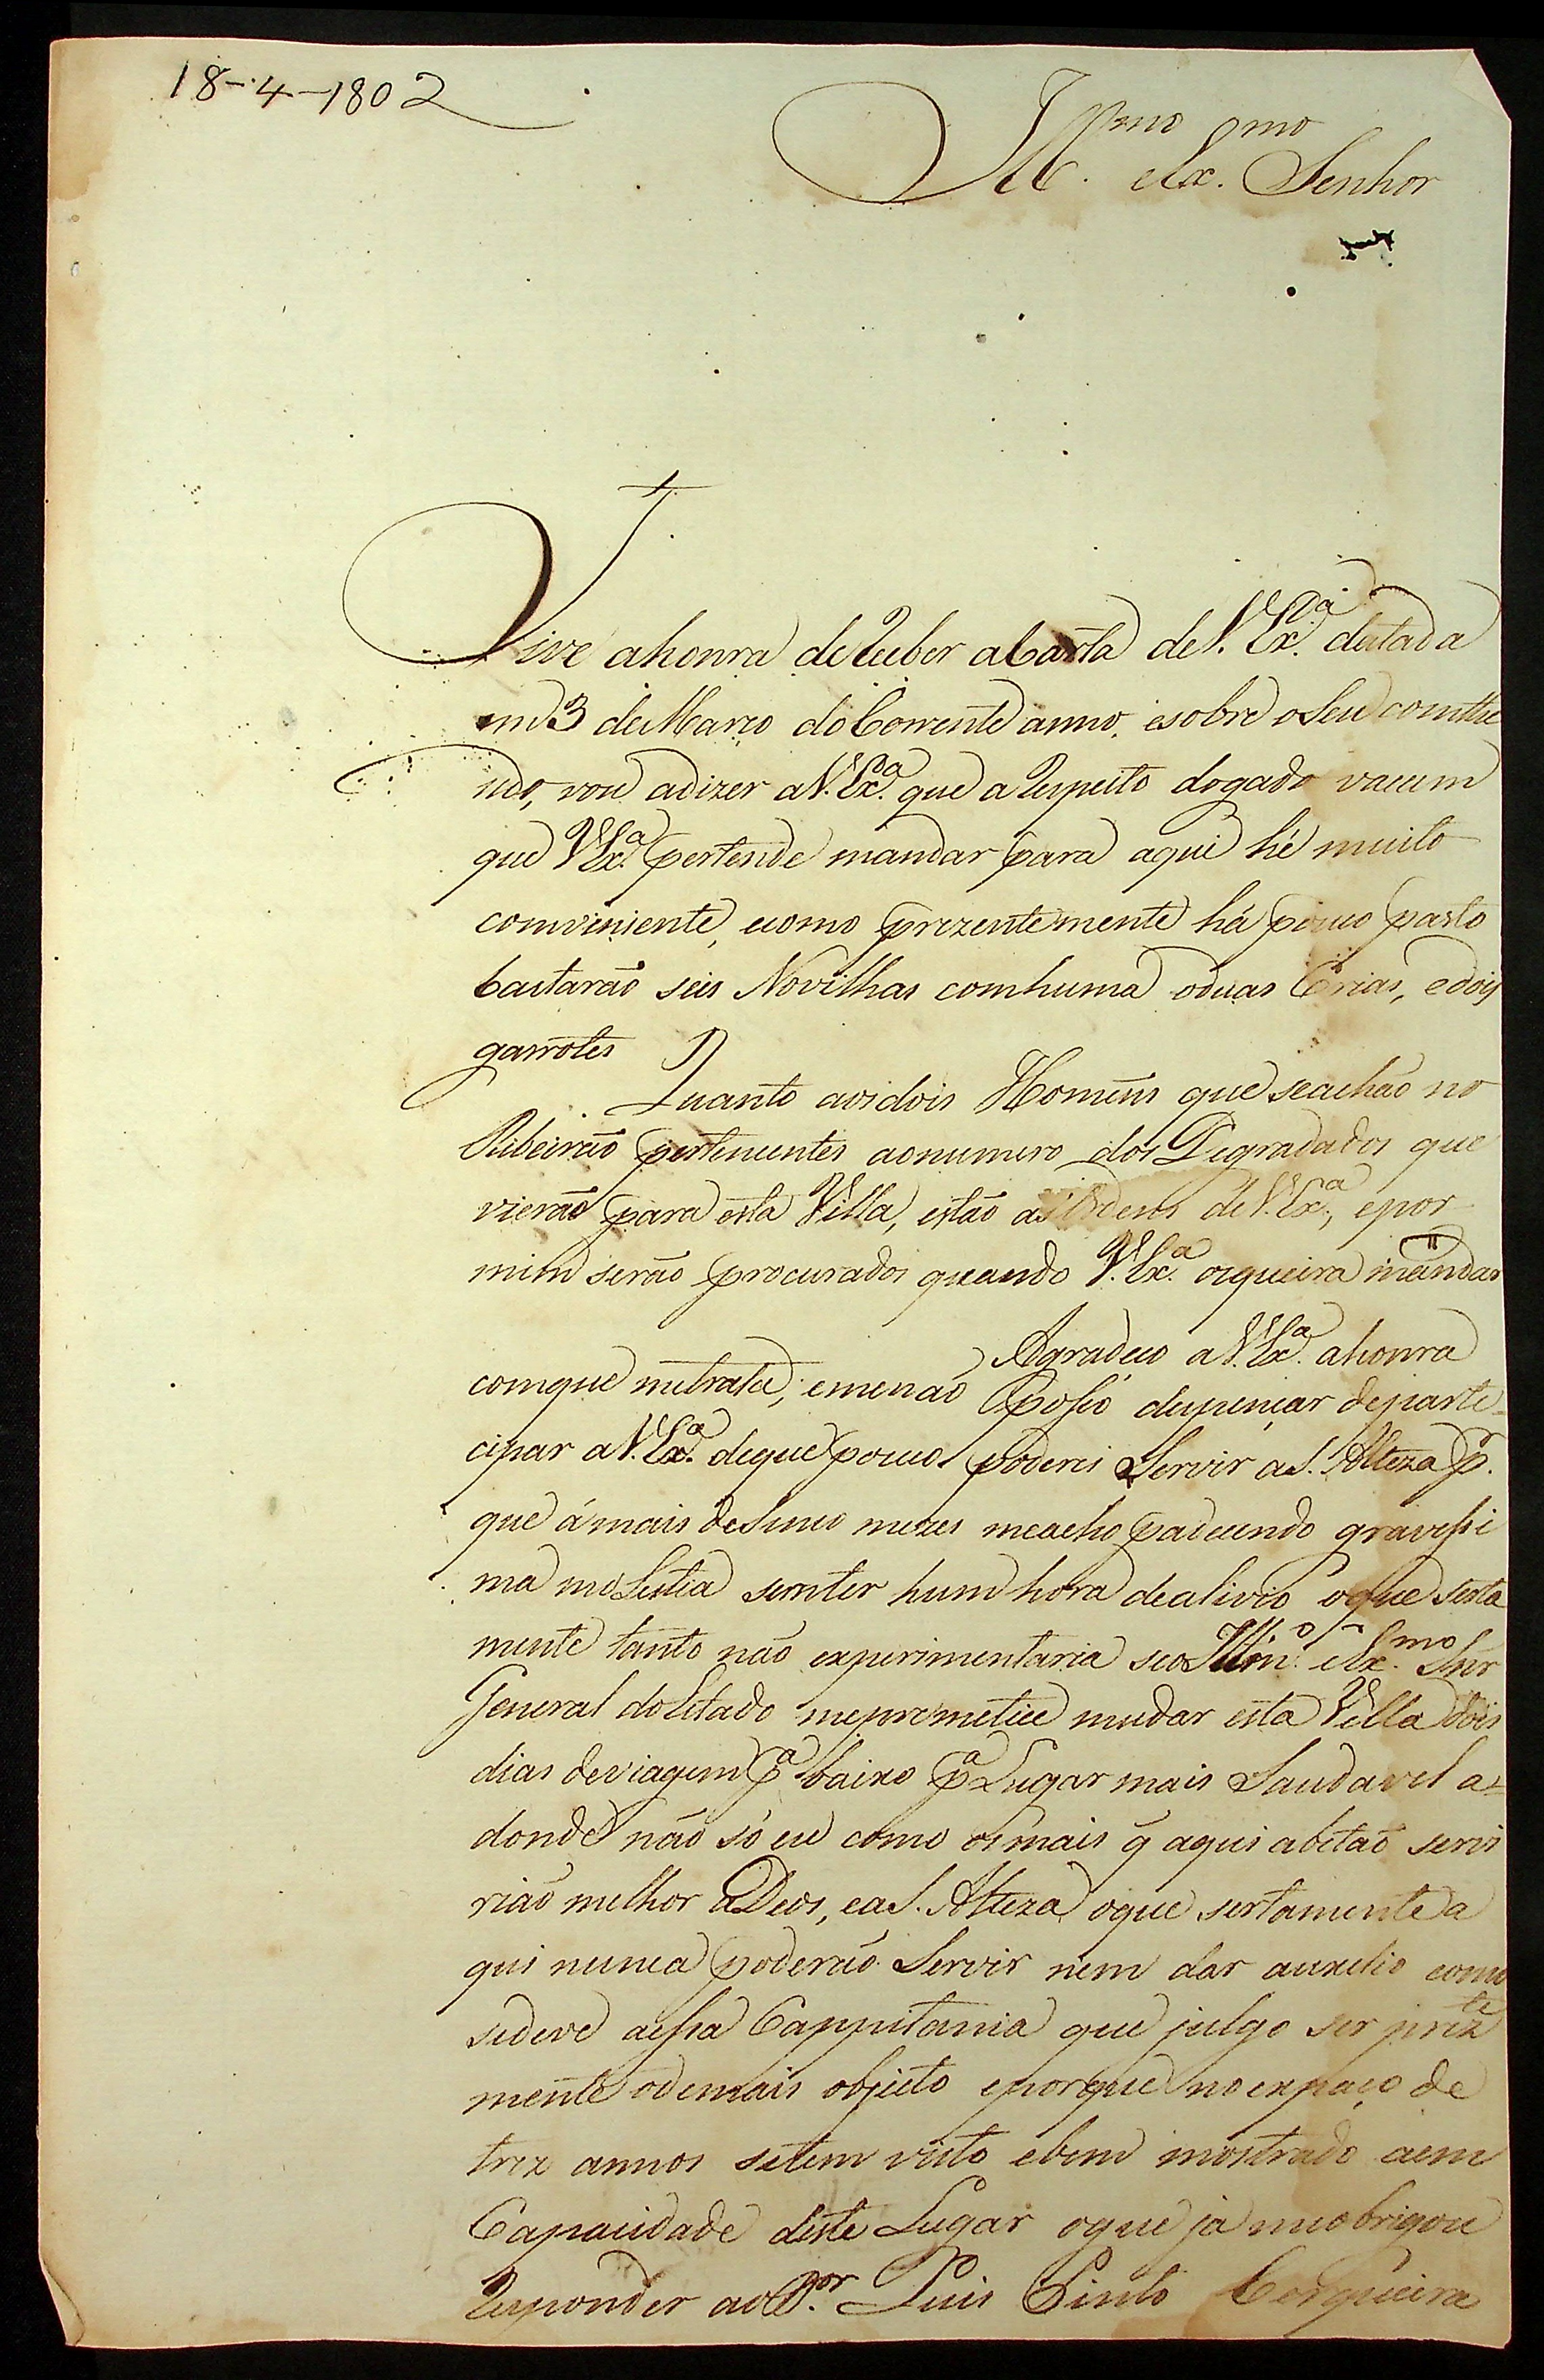 18-4-1802
Ill.mo e Ex.mo Senhor
Tive ahonra de Receber a Carta de V. Ex.ª datada
em 3 de Março do Corrente anno, e sobre o Seu comthe
udo, vou adizer a V. Ex.ª que a Respeito do gado vacum
que V. Ex.ª pertende mandar para aqui hé muito
comveniente, e como prezentemente há pouco pasto
bastaraõ seis Novilhas com huma o duas Crias, e dois
garrotes
Quanto aos dois Homens que se achaõ no
Ribeiraõ pertencentes ao numero dos Degradados que
vieraõ para esta Villa, estaõ as Ordens de V. Ex.ª, e por
mim seraõ procurados quando V. Ex.ª os queira mandar
Agradeco a V. Ex.ª ahonra
com que me trata; e me naõ posso despençar de parte=
cipar a V. Ex.ª de que pouco poderei Servir a S. Alteza p.
que á mais de sinco mezes me acho padecendo gravessi
ma molestia sem ter hum hora de alivio o que serta
mente tanto naõ experimentaria se o Illm.º e Ex.mo Snr
General do Estado me prometice mudar esta Villa dois
dias de viagem pª baixo pª Lugar mais Saudavel a=
donde naõ só eu como os mais q̃ aqui abitaõ servi
riaõ melhor a Deos, e a S. Alteza, o que sertamente a
qui nunca poderaõ Servir nem dar auxilio como
se deve a essa Cappitania que julgo ser prezte
mente o demais objecto e porque no expaço de
trez annos se tem visto e bem mostrado a em
Capacidade deste Lugar o que ja me obrigou
Responder ao D.or Luis Pinto Cerqueira